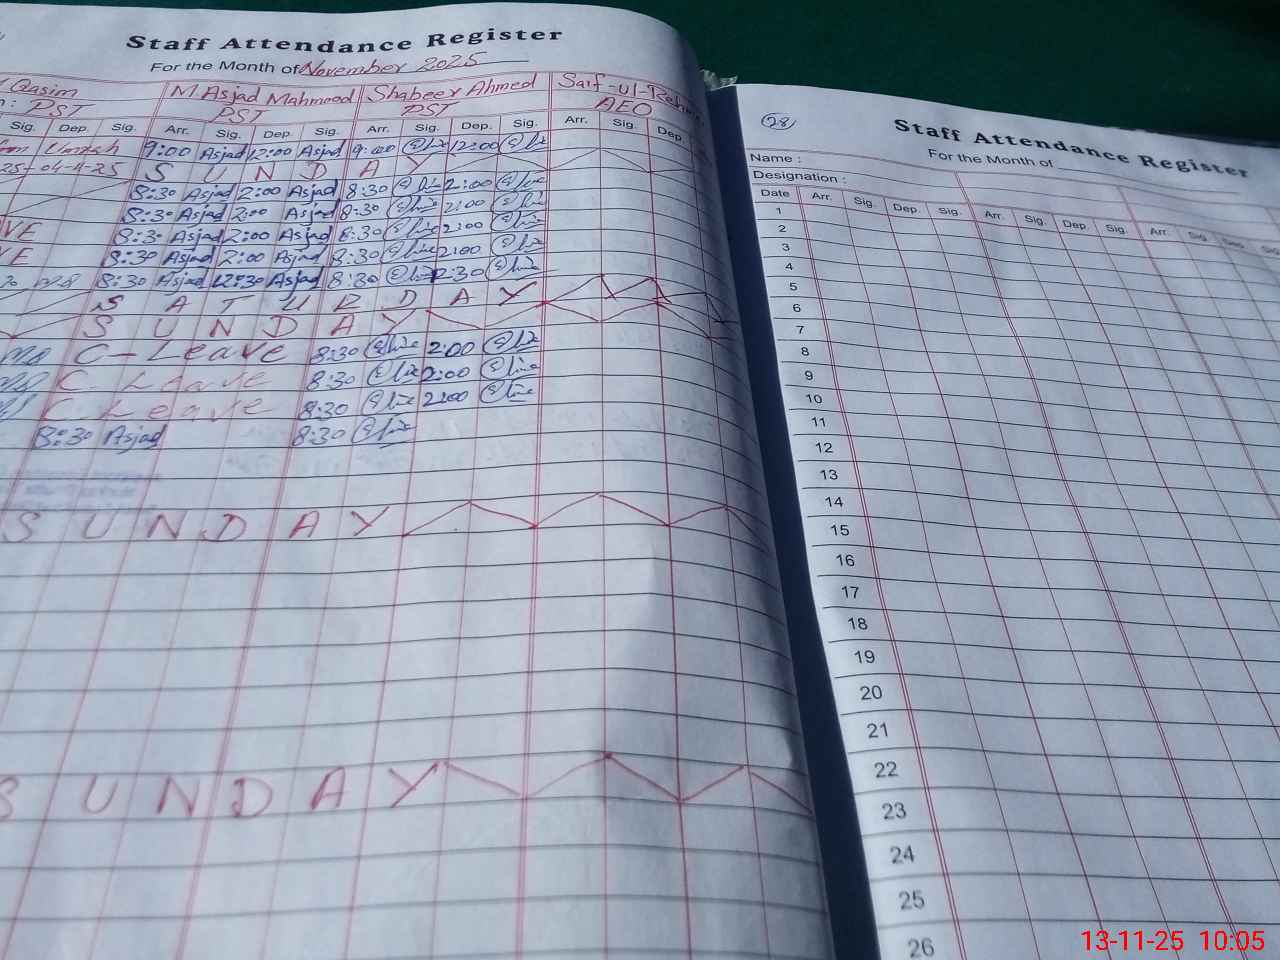 Staff Attendance Register
For the Month of November 2025
Qasim M. Asjad Mahmood Shabeer Ahmed Saif-ul-Rehman
: PST PST PST AEO
Sig. Dep. Sig. Arr. Sig. Dep. Sig. Arr. Sig. Dep. Sig. Arr. Sig. Dep.
9:00 Asjad 12:00 Asjad 9:00 12:00
25-04-11-25 S U N D A Y
8:30 Asjad 2:00 Asjad 8:30 2:00
8:30 Asjad 2:00 Asjad 8:30 2:00
VE 8:30 Asjad 2:00 Asjad 8:30 2:00
VE 8:30 Asjad 2:00 Asjad 8:30 2:00
8:30 Asjad 12:30 Asjad 8:30 12:30
S A T U R D A Y
S U N D A Y
C-Leave 8:30 2:00
C. Leave 8:30 2:00
C. Leave 8:30 2:00
8:30 Asjad 8:30
S U N D A Y
S U N D A Y
28
Staff Attendance Register
For the Month of
Name :
Designation :
Date Arr. Sig. Dep. Sig. Arr. Sig. Dep. Sig. Arr. Sig. Dep. Sig.
1
2
3
4
5
6
7
8
9
10
11
12
13
14
15
16
17
18
19
20
21
22
23
24
25
26
13-11-25 10:05